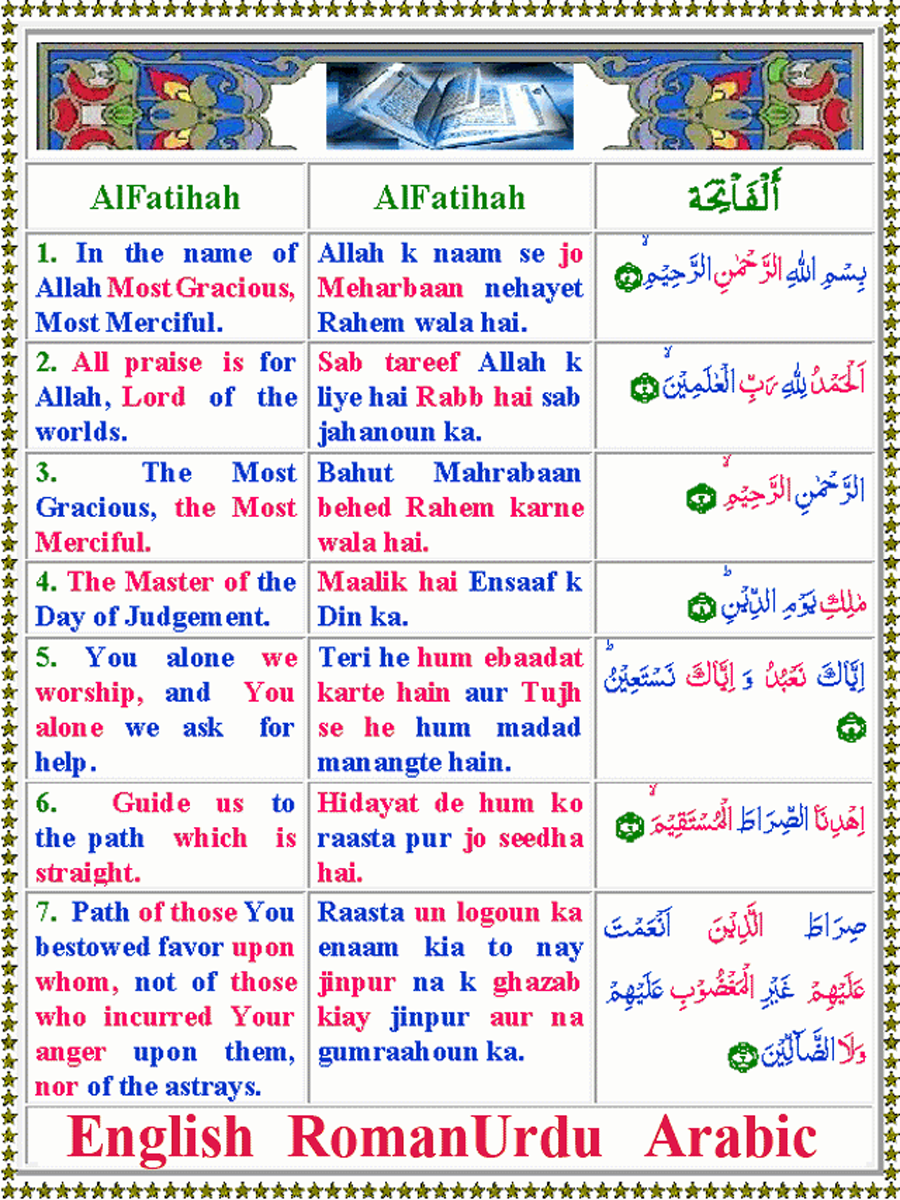 AlFatihah
AlFatihah
أَلْفَاتِحَة
1. In the name of
Allah Most Gracious,
Most Merciful.
Allah k naam se jo
Meharbaan nehayet
Rahem wala hai.
بِسْمِ اللّٰهِ الرَّحْمٰنِ الرَّحِيْمِۙ
2. All praise is for
Allah, Lord of the
worlds.
Sab tareef Allah k
liye hai Rabb hai sab
jahanoun ka.
اَلْحَمْدُ لِلّٰهِ رَبِّ الْعٰلَمِيْنَۙ
3. The Most
Gracious, the Most
Merciful.
Bahut Mahrabaan
behed Rahem karne
wala hai.
الرَّحْمٰنِ الرَّحِيْمِۙ
4. The Master of the
Day of Judgement.
Maalik hai Ensaaf k
Din ka.
مٰلِكِ يَوْمِ الدِّيْنِؕ
5. You alone we
worship, and You
alone we ask for
help.
Teri he hum ebaadat
karte hain aur Tujh
se he hum madad
manangte hain.
اِيَّاكَ نَعْبُدُ وَ اِيَّاكَ نَسْتَعِيْنُؕ
6. Guide us to
the path which is
straight.
Hidayat de hum ko
raasta pur jo seedha
hai.
اِهْدِنَا الصِّرَاطَ الْمُسْتَقِيْمَۙ
7. Path of those You
bestowed favor upon
whom, not of those
who incurred Your
anger upon them,
nor of the astrays.
Raasta un logoun ka
enaam kia to nay
jinpur na k ghazab
kiay jinpur aur na
gumraahoun ka.
صِرَاطَ الَّذِيْنَ اَنْعَمْتَ
عَلَيْهِمْ غَيْرِ الْمَغْضُوْبِ عَلَيْهِمْ
وَلَا الضَّآلِّيْنَ
English RomanUrdu Arabic